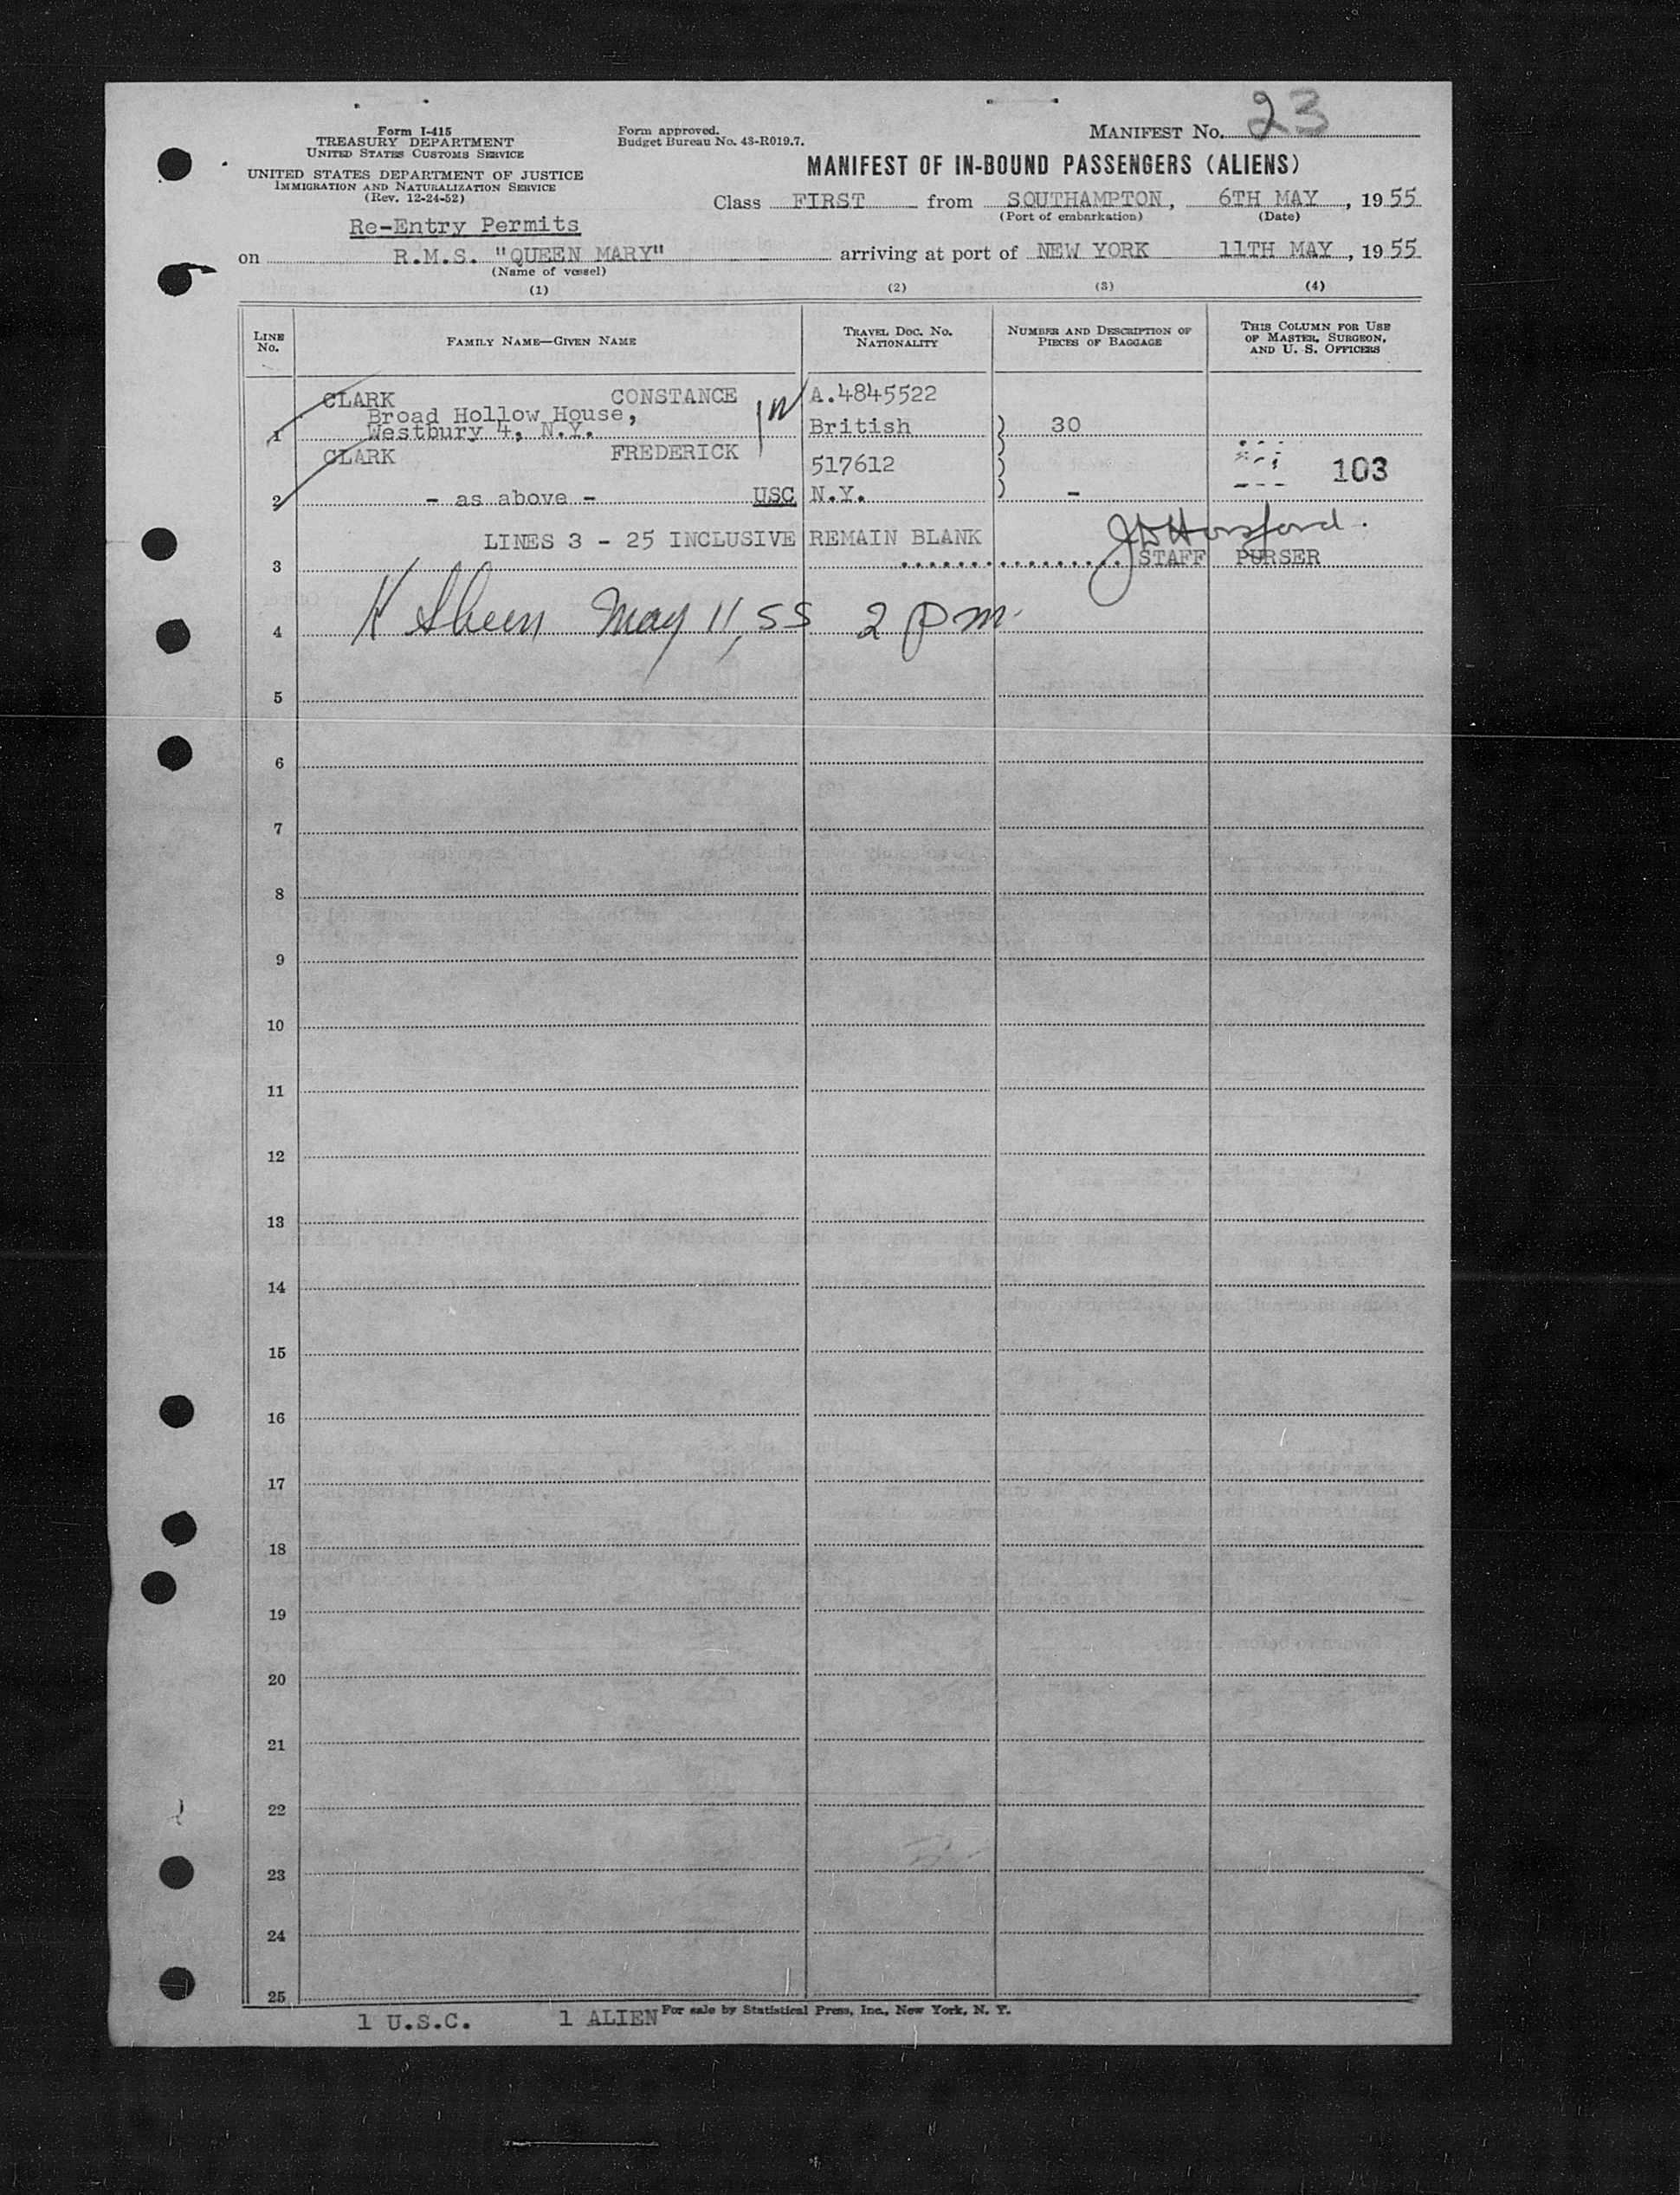 Form I-415
TREASURY DEPARTMENT
UNITED STATES CUSTOMS SERVICE
UNITED STATES DEPARTMENT OF JUSTICE
IMMIGRATION AND NATURALIZATION SERVICE
(Rev. 12-24-52)
Form approved.
Budget Bureau No. 43-R019.7.
MANIFEST No. 23
MANIFEST OF IN-BOUND PASSENGERS (ALIENS)
Class FIRST from SOUTHAMPTON, 6TH MAY, 1955
(Port of embarkation) (Date)
Re-Entry Permits
on R.M.S. "QUEEN MARY" arriving at port of NEW YORK 11TH MAY, 1955
(Name of vessel)
(1) (2) (3) (4)
LINE No.
FAMILY NAME—GIVEN NAME
TRAVEL DOC. No. NATIONALITY
NUMBER AND DESCRIPTION OF PIECES OF BAGGAGE
THIS COLUMN FOR USE OF MASTER, SURGEON, AND U. S. OFFICERS
CLARK CONSTANCE A.4845522
Broad Hollow House,
1 Westbury 4, N.Y. British ) 30
CLARK FREDERICK 517612 103
2 - as above - USC N.Y. ) -
LINES 3 - 25 INCLUSIVE REMAIN BLANK
3 STAFF PURSER
4 May 11, 55 2 pm
5
6
7
8
9
10
11
12
13
14
15
16
17
18
19
20
21
22
23
24
25
1 U.S.C. 1 ALIEN For sale by Statistical Press, Inc., New York, N. Y.